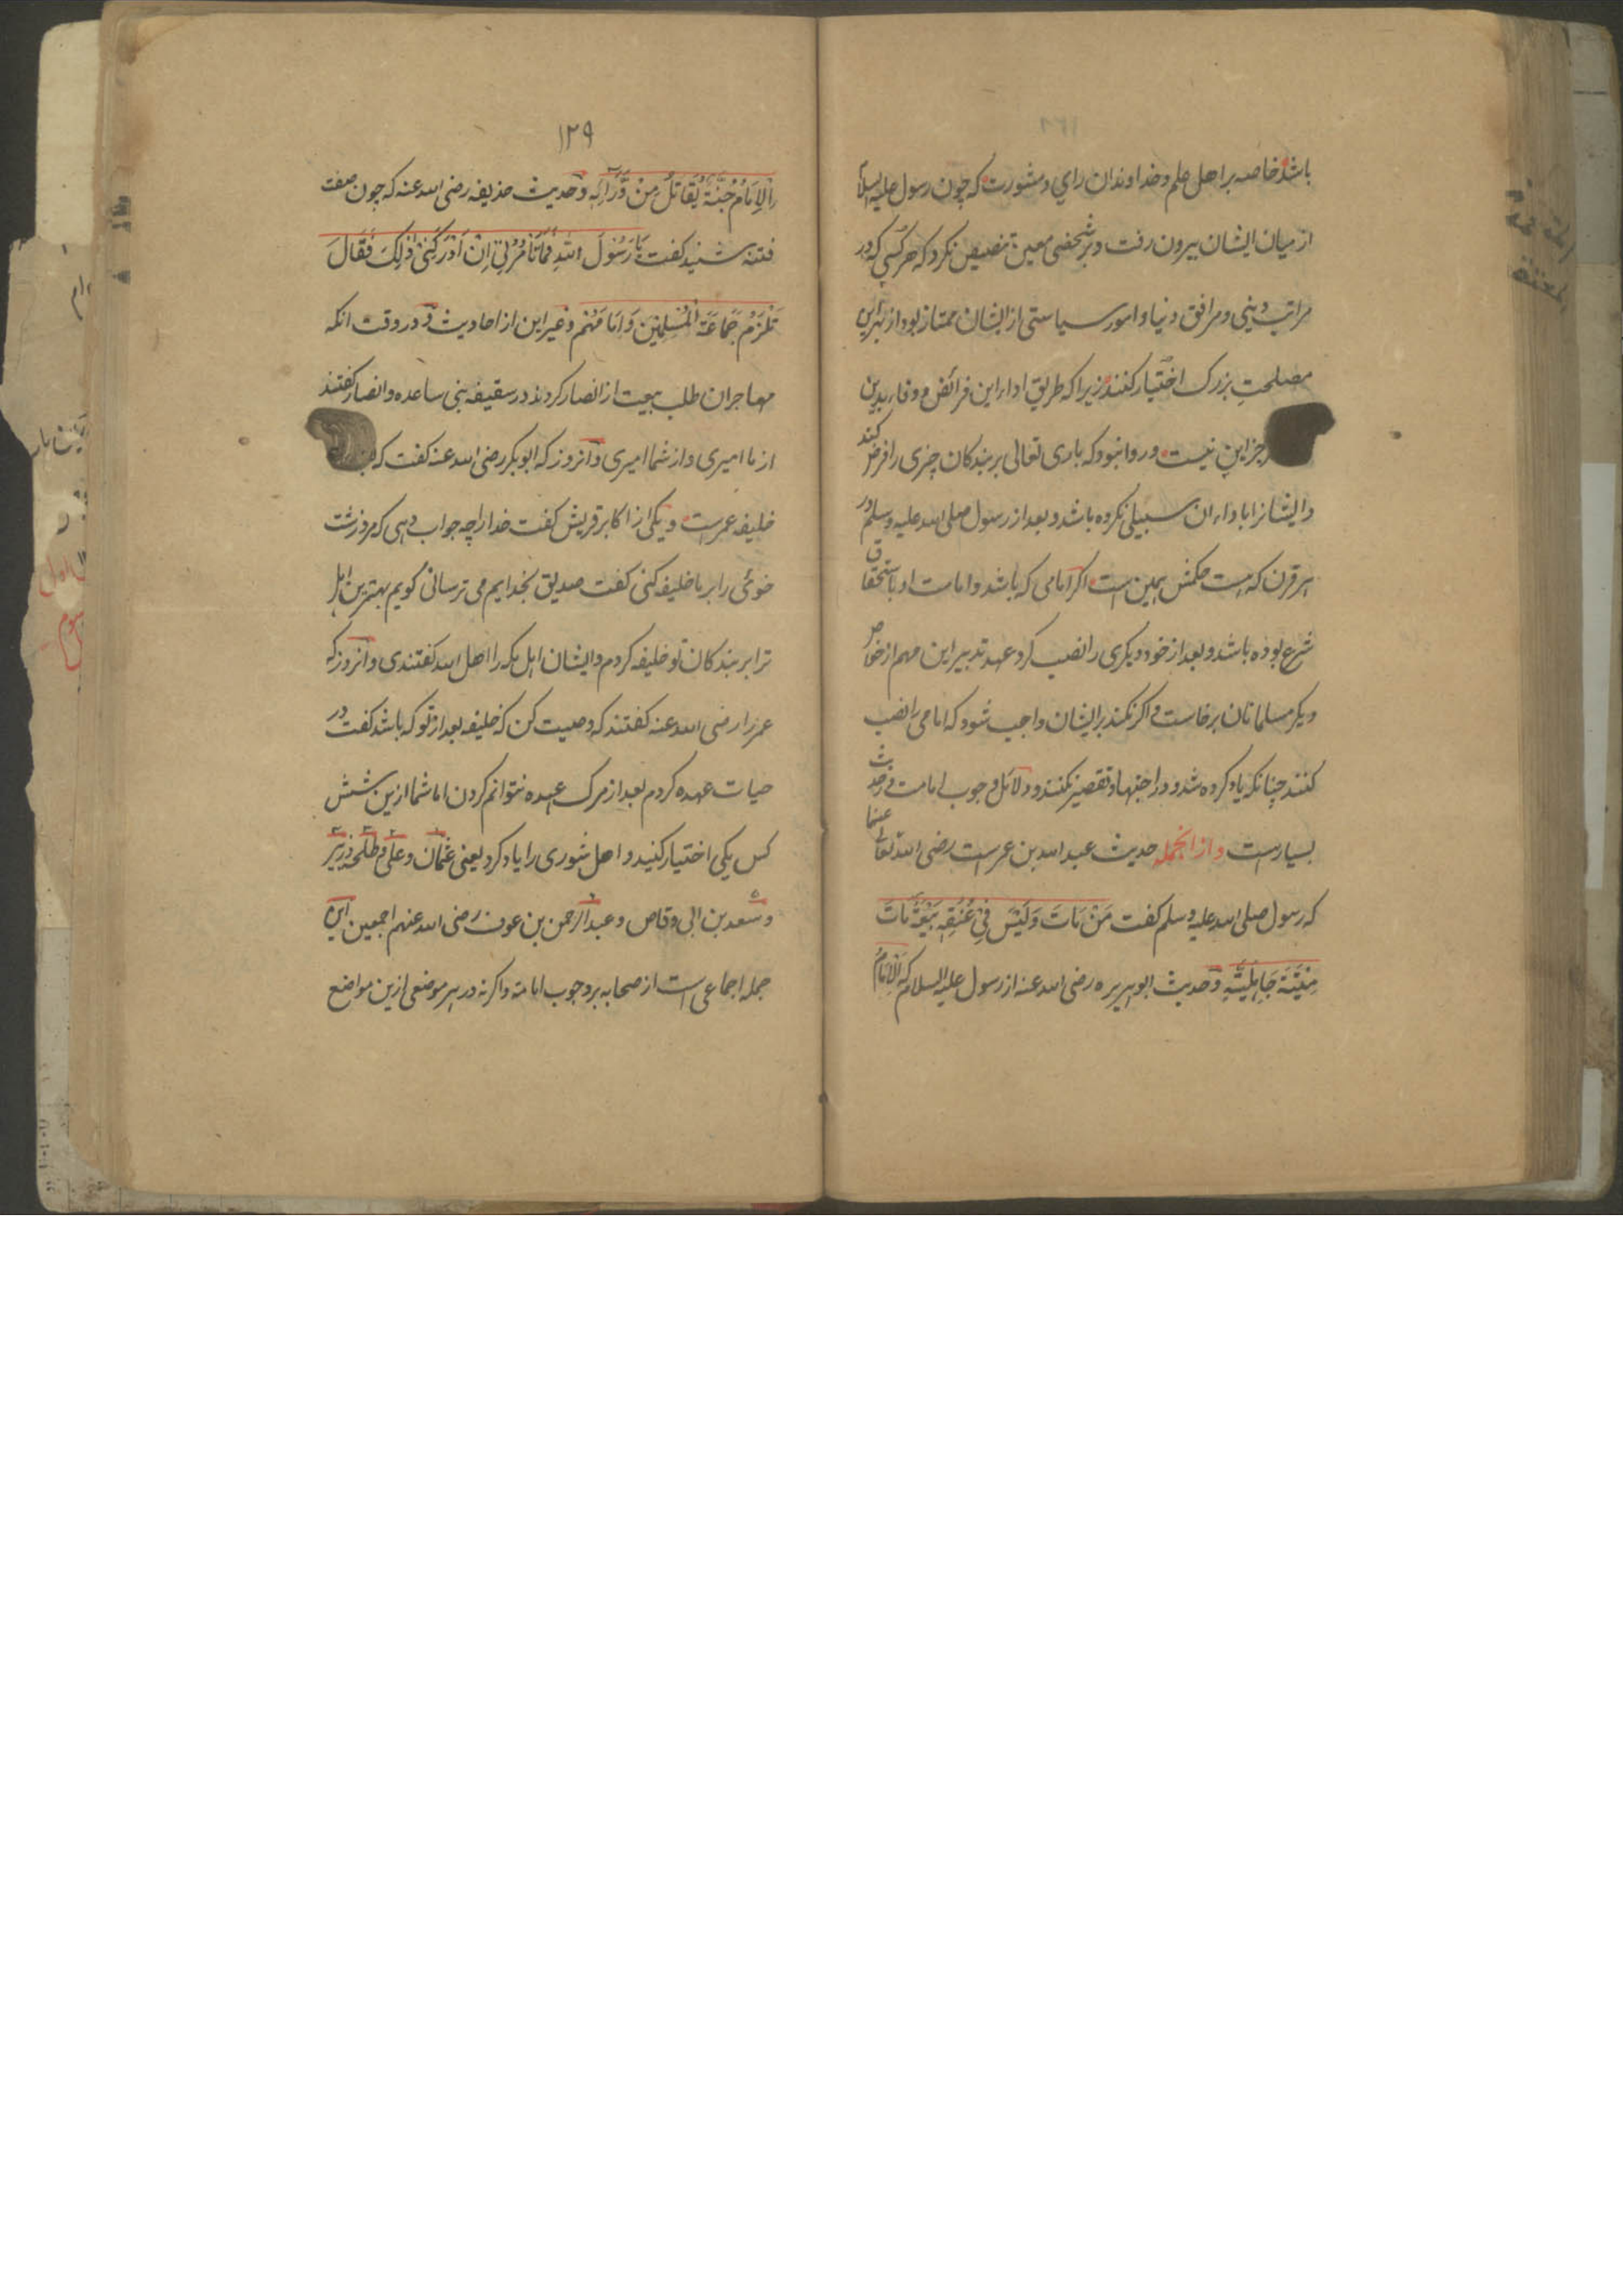 باشد خاصه بر اهل علم و خداوندان رای و مشورت که چون رسول علیه السلام
از میان ایشان بیرون رفت و بر شخصی معین تنصیص نکرد که هر کسی که در
مراتب دینی و مرافق دنیا و امور سیاستی از ایشان ممتاز بود از بهر این
مصلحت بزرک اختیار کنند زیرا که طریق اداء این فرائض و وفاء بدین
جز این نیست و روا نبود که باری تعالی بر بندکان چیزی را فرض کند
و ایشانرا باداء ان سبیلی نکرده باشد و بعد از رسول صلی الله علیه وسلم در
هر قرن که هست حکمش همین است اکر امامی که باشد و امامت او باستحقاق
شرع بوده باشد و بعد از خود دیکری را نصب کرد عهد تدبیر این مهم از خواص
دیکر مسلمانان برخاست و اکر نکند بر ایشان واجب شود که امامی را نصب
کنند چنانکه یاد کرده شد و در اجتهاد تقصیر نکنند و دلائل وجوب امامت در حدیث
بسیارست و از انجمله حدیث عبد الله بن عمرست رضی الله تعالی عنهما
که رسول صلی الله علیه وسلم کفت مَنْ مَاتَ وَلَیْسَ فِیْ عُنُقِهِ بَیْعَةٌ مَاتَ
مِیْتَةً جَاهِلِیَّةً و حدیث ابو هریره رضی الله عنه از رسول علیه السلام که اَلْاِمَامُ
۱۲۹
اَلْاِمَامُ جُنَّةٌ یُقَاتَلُ مِنْ وَّرَائِهِ و حدیث حذیفه رضی الله عنه که چون صفت
فتنه شنید کفت یَا رَسُوْلَ اللهِ فَمَا تَأْمُرُنِیْ اِنْ اَدْرَکَنِیْ ذٰلِکَ فَقَالَ
تَلْزَمُ جَمَاعَةَ الْمُسْلِمِیْنَ وَاِمَامَهُمْ و غیر این از احادیث و در وقت انکه
مهاجران طلب بیعت از انصار کردند در سقیفه بنی ساعده و انصار کفتند
از ما امیری و از شما امیری و انروز که ابوبکر رضی الله عنه کفت که
خلیفه عمرست و یکی از اکابر قریش کفت خدا را چه جواب دهی که مرد زشت
خوئی را بر ما خلیفه کنی کفت صدیق بخدایم می ترسانی کویم بهترین اهل
ترا بر بندکان تو خلیفه کردم و ایشان اهل مکه را اهل الله کفتندی و انروز که
عمر را رضی الله عنه کفتند که وصیت کن که خلیفه بعد از تو که باشد کفت در
حیات عهده کردم بعد از مرک عهده نتوانم کردن اما شما ازین شش
کس یکی اختیار کنید و اهل شوری را یاد کرد یعنی عثمان و علی و طلحه و زبیر
و سعد بن ابی وقاص و عبد الرحمن بن عوف رضی الله عنهم اجمعین این
جمله اجماعی است از صحابه بر وجوب امامة و اکرنه در هر موضعی ازین مواضع